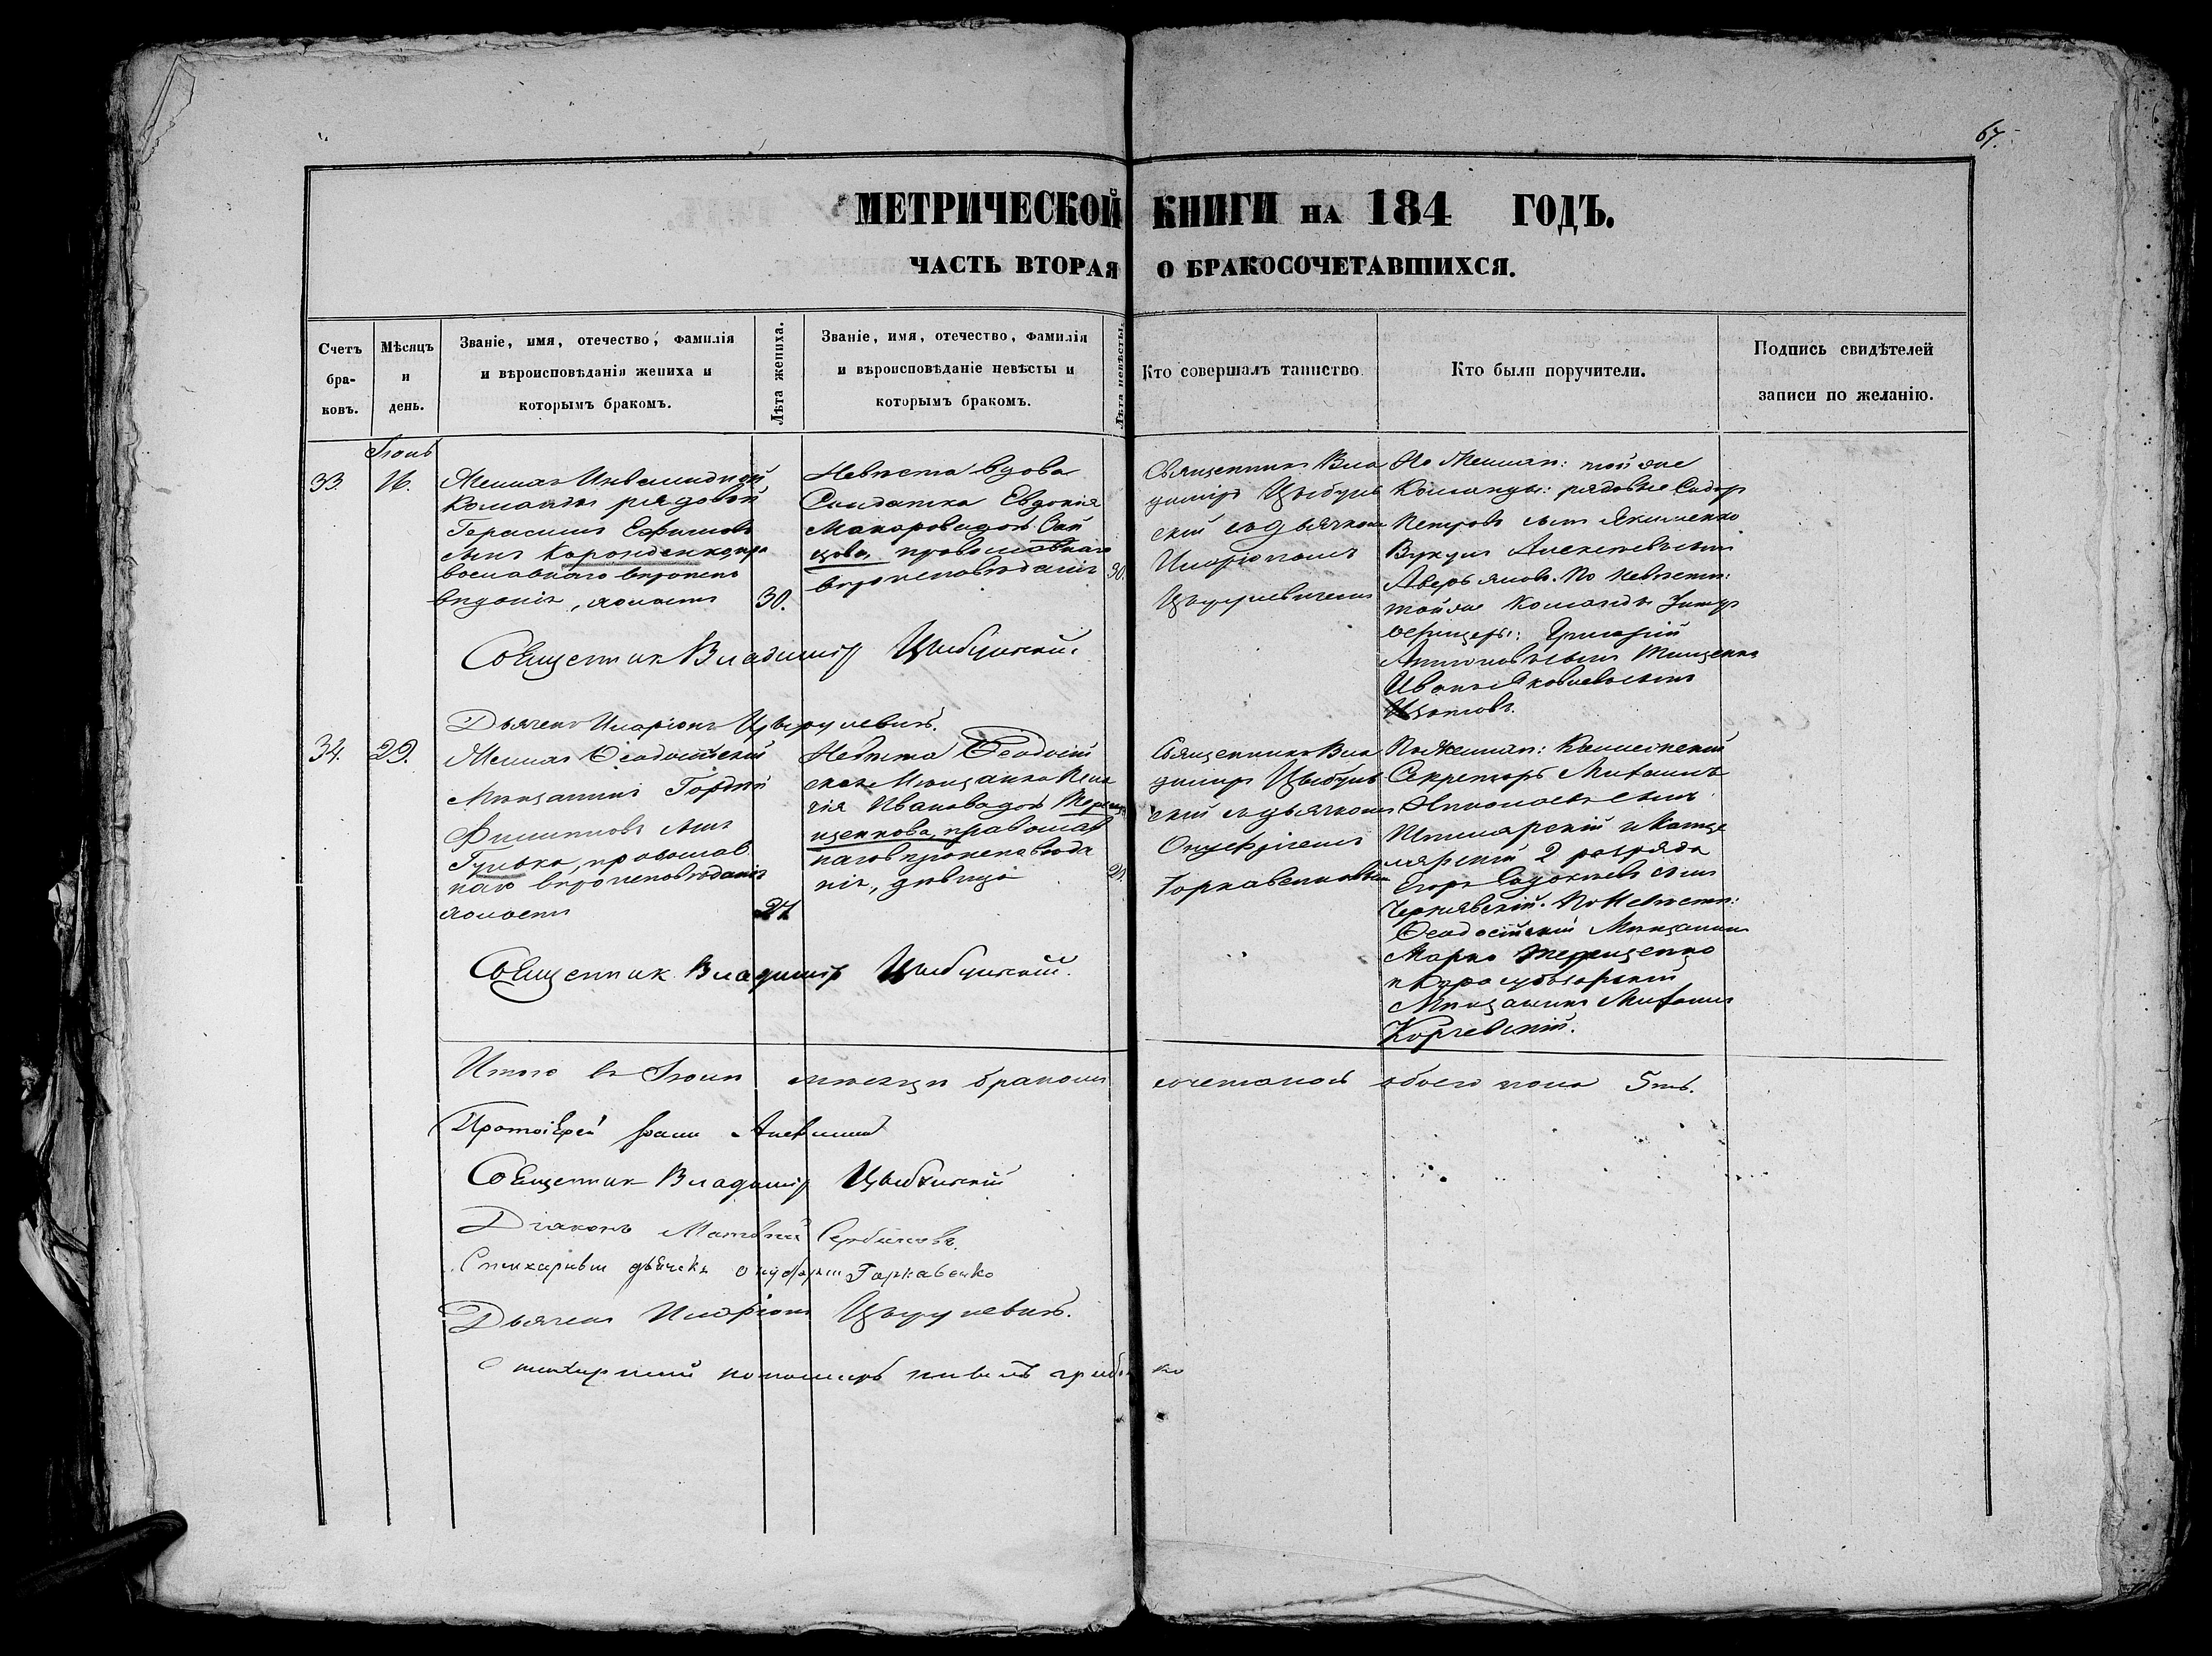 67.
МЕТРИЧЕСКОЙ КНИГИ НА 184 ГОДЪ.
ЧАСТЬ ВТОРАЯ О БРАКОСОЧЕТАВШИХСЯ.
Счетъ бра-ковъ.
Мѣсяцъ и день.
Званіе, имя, отечество, фамилія
и вѣроисповѣданія жениха и
которымъ бракомъ.
Лѣта жениха.
Званіе, имя, отечество, фамилія
и вѣроисповѣданіе невѣсты и
которымъ бракомъ.
Лѣта невѣсты.
Кто совершалъ таинство
Кто были поручители.
Подпись свидѣтелей
записи по желанію.
Іюнь
33.
16.
Женихъ Инвалидной
Команды рядовой
Герасимъ Ефимовъ
сынъ
вославнаго вѣроиспо
вѣданія, холостъ
30.
Невѣста вдова
Солдатка Евдокія
Макаровадочь
цова, православнаго
вѣроисповѣданія
30.
Священникъ Вла
димиръ Цыбуль
скій съ дьячкомъ
Иларіономъ
По Жених: той же
Команды: рядовые Сидоръ
Петровъ сынъ Якименко
Вукулъ Алексѣевъ сынъ
Аверьяновъ. По Невѣстѣ:
той же Команды Унтеръ
офицеры: Григорій
Антоновъ сынъ Тищенко
Иванъ Яковлевъ сынъ
Священник Владимиръ Цыбульский.
Дьячекъ Иларіонъ Цыцулевичъ.
34.
29.
Женихъ Ѳеодосійскій
Мѣщанинъ Гордій
Филиповъ сынъ
Гулько, православ
наго вѣроисповѣданія
холостъ
27
Невѣста Ѳеодосій
ская Мѣщанка Пела
гія Ивановадочь Тере
щенкова, православ
наговѣроисповѣда
нія, дѣвица
21.
Священникъ Вла
димиръ Цыбуль
скій съ дьячкомъ
Онуфріемъ
По Жених: Коллежскій
Секретарь Михаилъ
Николаевъ сынъ
и Канце
лярскій 2 разряда
Егоръ сынъ
Чернявскій. По Невѣстѣ:
Ѳеодосійскій Мѣщанинъ
Марко Терещенко
и Карасубазарскій
Мѣщанинъ Михаилъ
Корчевскій.
Священник Владимиръ Цыбульский.
Итого въ Іюнѣ мѣсяцѣ бракомъ сочеталось обоего пола 5ть.
Протоіерей
Священник Владимиръ Цыбульский
Діаконъ Матвѣй Сербиновъ.
Стихарный дьячекъ Онуфрій Гаркавенко
Дьячекъ Иларіонъ Цыцулевичъ.
Стихарный пономарь